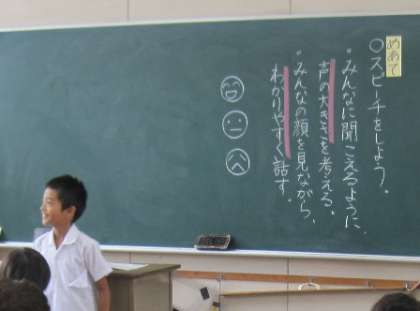 めあて
○スピーチをしよう。
"みんなに聞こえるように、
声の大きさを考える。
"みんなの顔を見ながら、
わかりやすく話す。